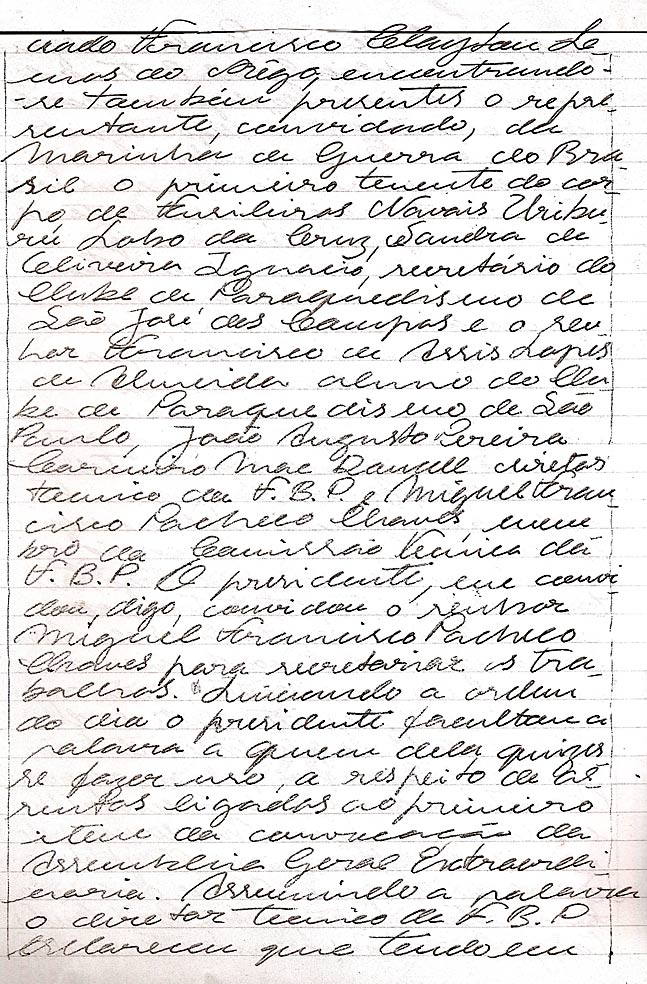 ciado Francisco Clayton Le
mos do Rêgo, encontrando-
-se também presentes o repre-
sentante, convidado, da
Marinha de Guerra do Bra
sil o primeiro tenente do cor
po de Fusileiros Navais Uribu
ru Lobo da Cruz, Sandra de
Oliveira Ignacio, secretário do
Clube de Paraquedismo de
São José dos Campos e o se
nhor Francisco de Assis Lopes
de Almeida aluno do Clu
be de Paraquedismo de São
Paulo, João Augusto Pereira
Carneiro Mac Dowell diretor
tecnico da F.B.P. e Miguel Fran
cisco Pacheco Chaves, mem
bro da Comissão Tecnica da
F.B.P. O presidente, em convi-
dou, digo, convidou o senhor
Miguel Francisco Pacheco
Chaves para secretariar os tra-
balhos. Iniciando a ordem
do dia o presidente facultou a
palavra a quem dela quizes
se fazer uso, a respeito de as-
suntos ligados ao primeiro
item da convocação da
Assembleia Geral Extraordi
naria. Assumindo a palavra
o diretor tecnico da F.B.P
esclareceu que tendo em